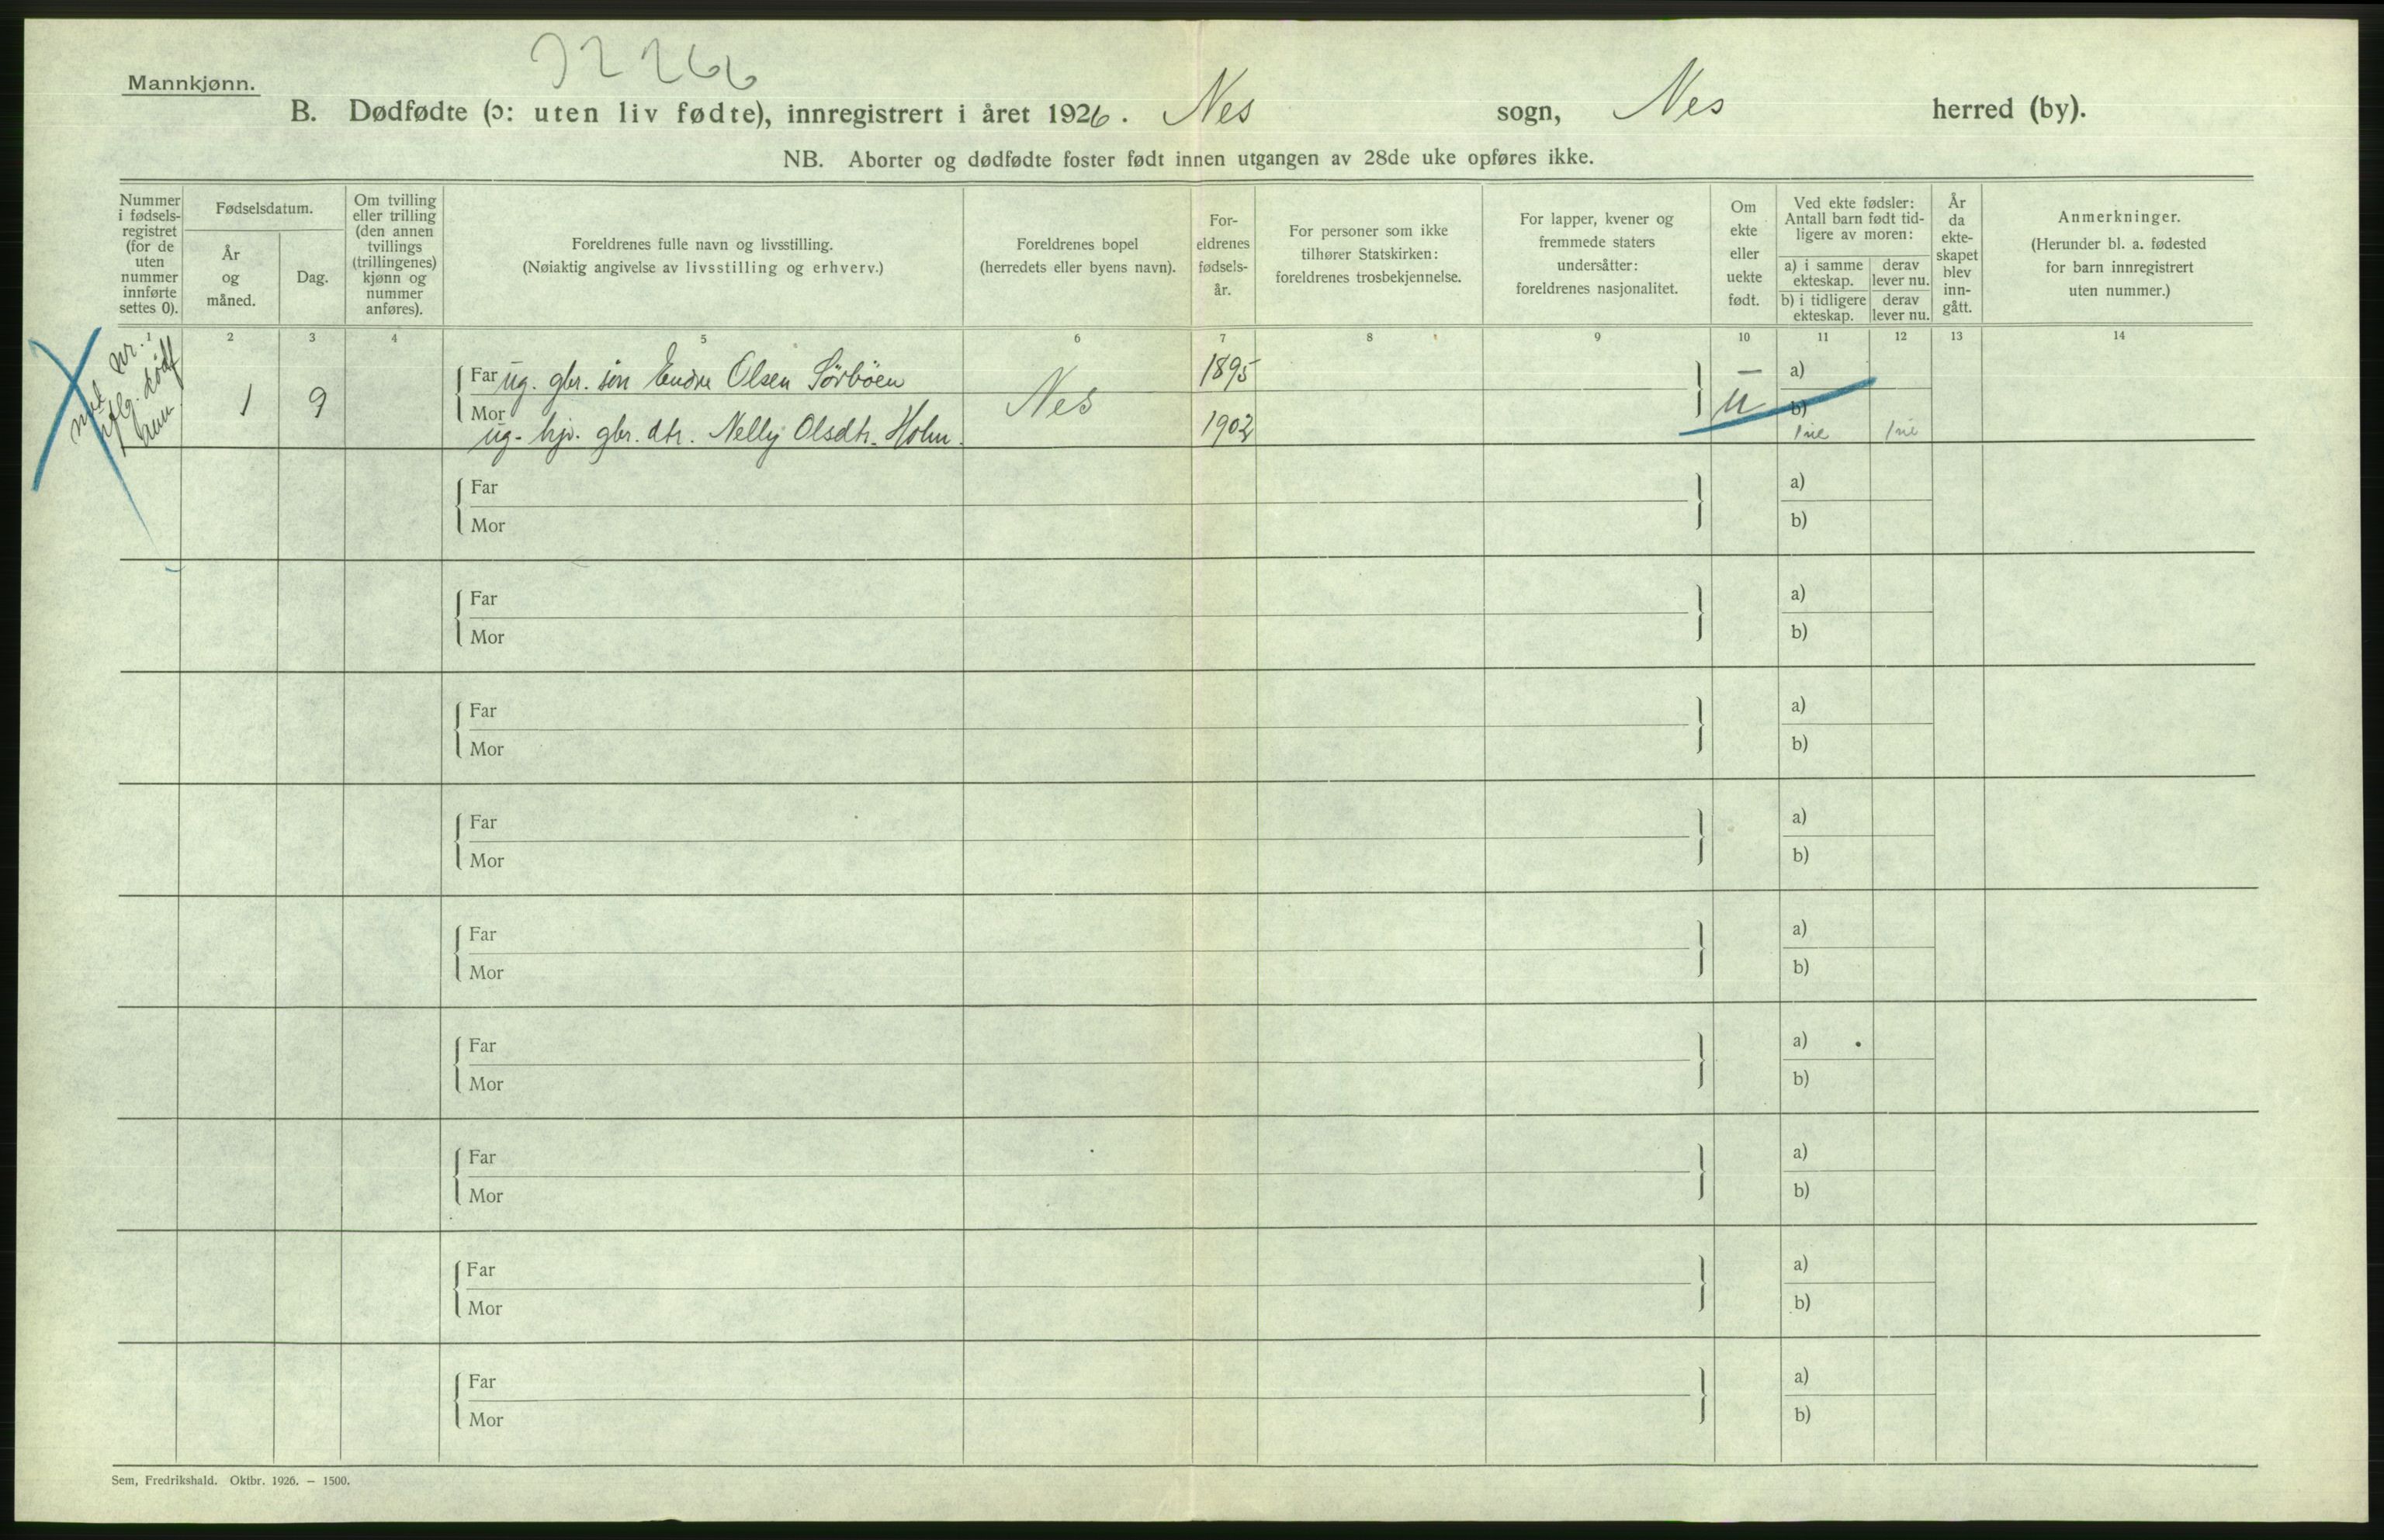 Mannkjønn.
B. Dødfødte (ɔ: uten liv fødte), innregistrert i året 1926. Nes sogn, Nes herred (by).
NB. Aborter og dødfødte foster født innen utgangen av 28de uke opføres ikke.
Nummer
i fødsels-
registret
(for de
uten
nummer
innførte
settes 0).
Fødselsdatum.
År
og
måned.
Dag.
Om tvilling
eller trilling
(den annen
tvillings
(trillingenes)
kjønn og
nummer
anføres).
Foreldrenes fulle navn og livsstilling.
(Nøiaktig angivelse av livsstilling og erhverv.)
Foreldrenes bopel
(herredets eller byens navn).
For-
eldrenes
fødsels-
år.
For personer som ikke
tilhører Statskirken:
foreldrenes trosbekjennelse.
For lapper, kvener og
fremmede staters
undersåtter:
foreldrenes nasjonalitet.
Om
ekte
eller
uekte
født.
Ved ekte fødsler:
Antall barn født tid-
ligere av moren:
a) i samme
ekteskap.
derav
lever nu.
b) i tidligere
ekteskap.
derav
lever nu.
År
da
ekte-
skapet
blev
inn-
gått.
Anmerkninger.
(Herunder bl. a. fødested
for barn innregistrert
uten nummer.)
1 2 3 4 5 6 7 8 9 10 11 12 13 14
nr.
dødf
1 9
Far ug. gbr. søn Endre Olsen Sörböen Nes 1895 — a)
Mor u b)
ug. hjv. gbr. dtr. Nelly Olsdtr. Holm. 1902
Far a)
Mor b)
Far a)
Mor b)
Far a)
Mor b)
Far a)
Mor b)
Far a)
Mor b)
Far a)
Mor b)
Far a)
Mor b)
Far a)
Mor b)
Far a)
Mor b)
Sem, Fredrikshald. Oktbr. 1926. — 1500.